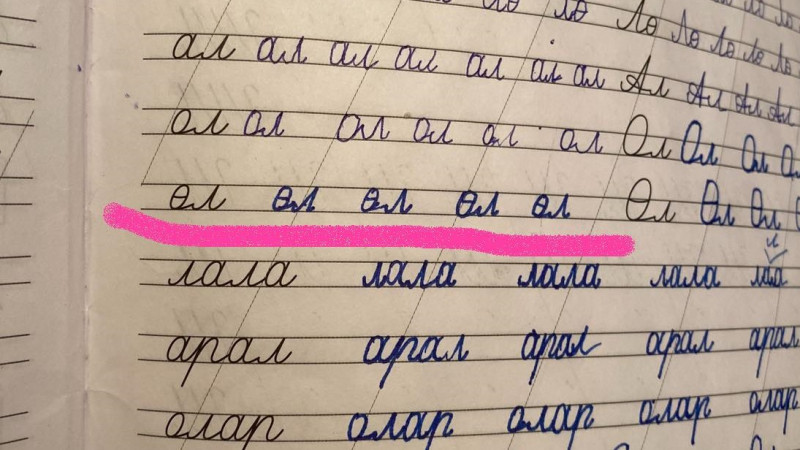 лө лө Лө Лө Лө Лө Лө
ал ал ал ал ал ал ал Ал Ал Ал Ал
ол ол ол ол ол ол Ол Ол Ол
өл өл өл өл өл Өл Өл Өл
лала лала лала лала лала
арал арал арал арал арал
олар олар олар олар олар